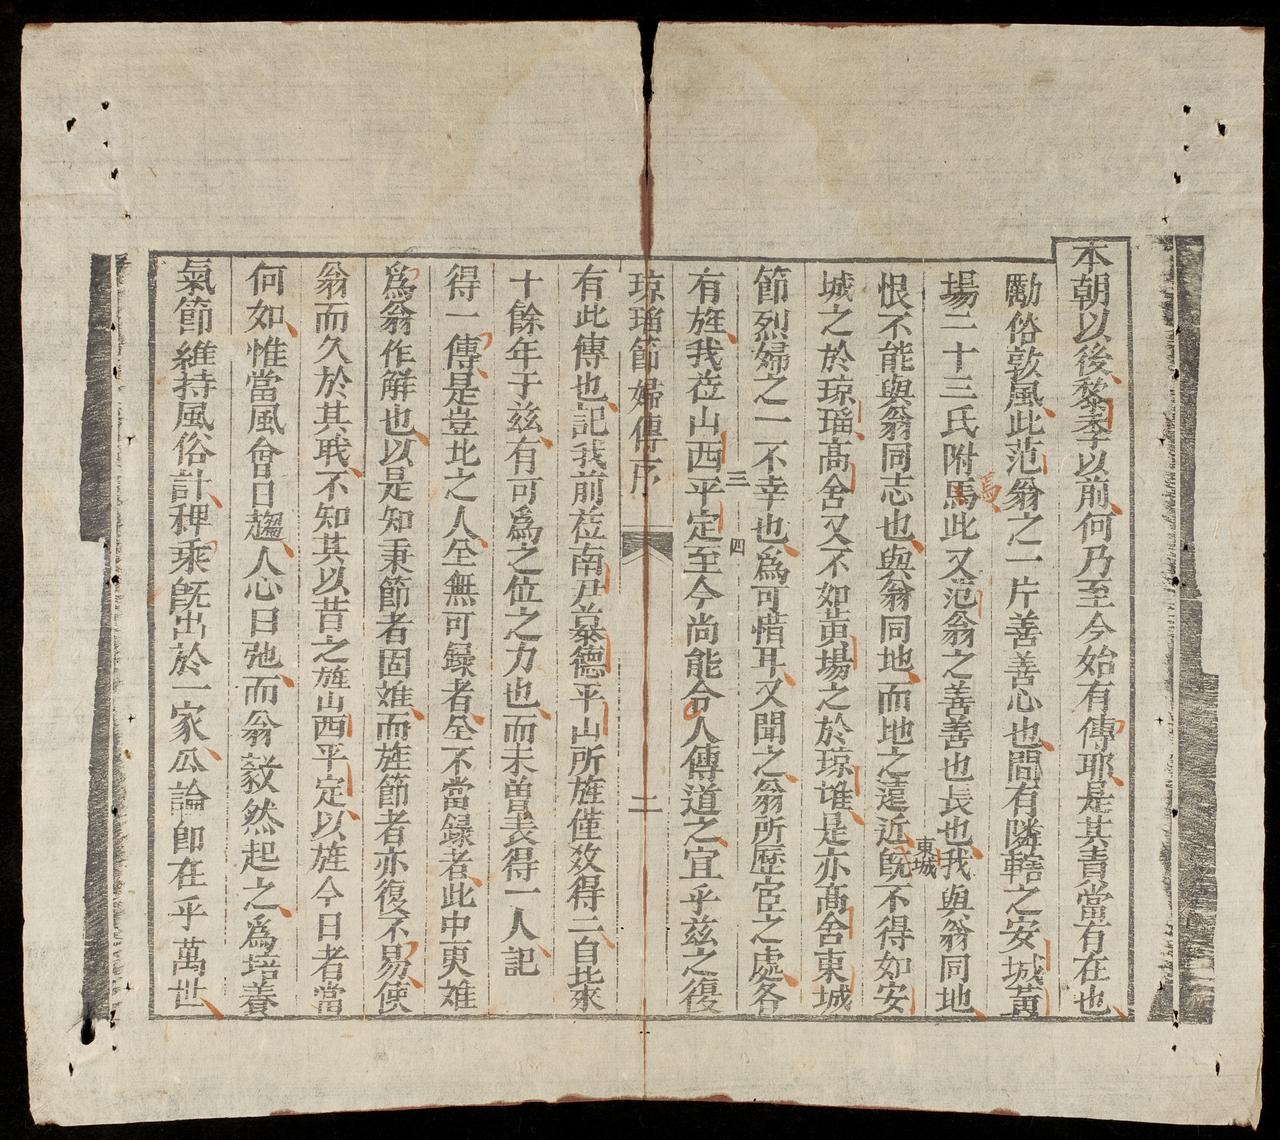 本朝以後黎季以前何乃至今始有傳耶是其責當有在也
勵俗敦風此范翁之一片善善心也問有隣轄之安城黃
場二十三氏附馬此又范翁之善善也長也我與翁同地
焉
東城
恨不能與翁同志也與翁同地而地之遠近旣不得如安
城之於琼瑠高舍又不如黃場之於琼堆是亦高舍東城
節烈婦之一不幸也爲可惜耳又聞之翁所歷宦之處各
三
四
有旌我莅山西平定至今尚能令人傳道之宜乎兹之復
琼瑠節婦傳序
二
有此傳也記我前莅南尹慕德平山所旌僅效得二自此來
十餘年于兹有可爲之位之力也而未曾表得一人記
得一傳是豈北之人全無可錄者全不當錄者此中更难
爲翁作解也以是知秉節者固难而旌節者亦復不易使
翁而久於其职不知其以昔之旌山西平定以旌今日者當
何如惟當風會日趨人心日弛而翁毅然起之爲培養
氣節維持風俗計稗乘旣出於一家公論卽在乎萬世